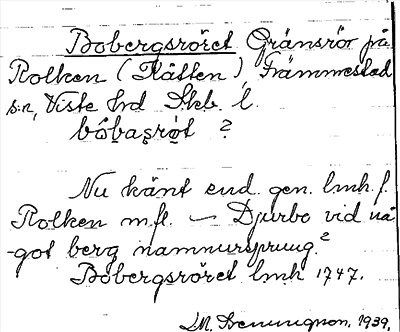 Bobergsröret Gränsrör på
Rolken (Slätten), Främmestad
sn, Viste hd Skb. l.
bo̊başrøt ?
Nu känt end. gen. lmh. f.
Rolken m.fl. — Djurbo vid nå
-got berg namnursprung?
Bobergsröret lmh 1747.
1939.